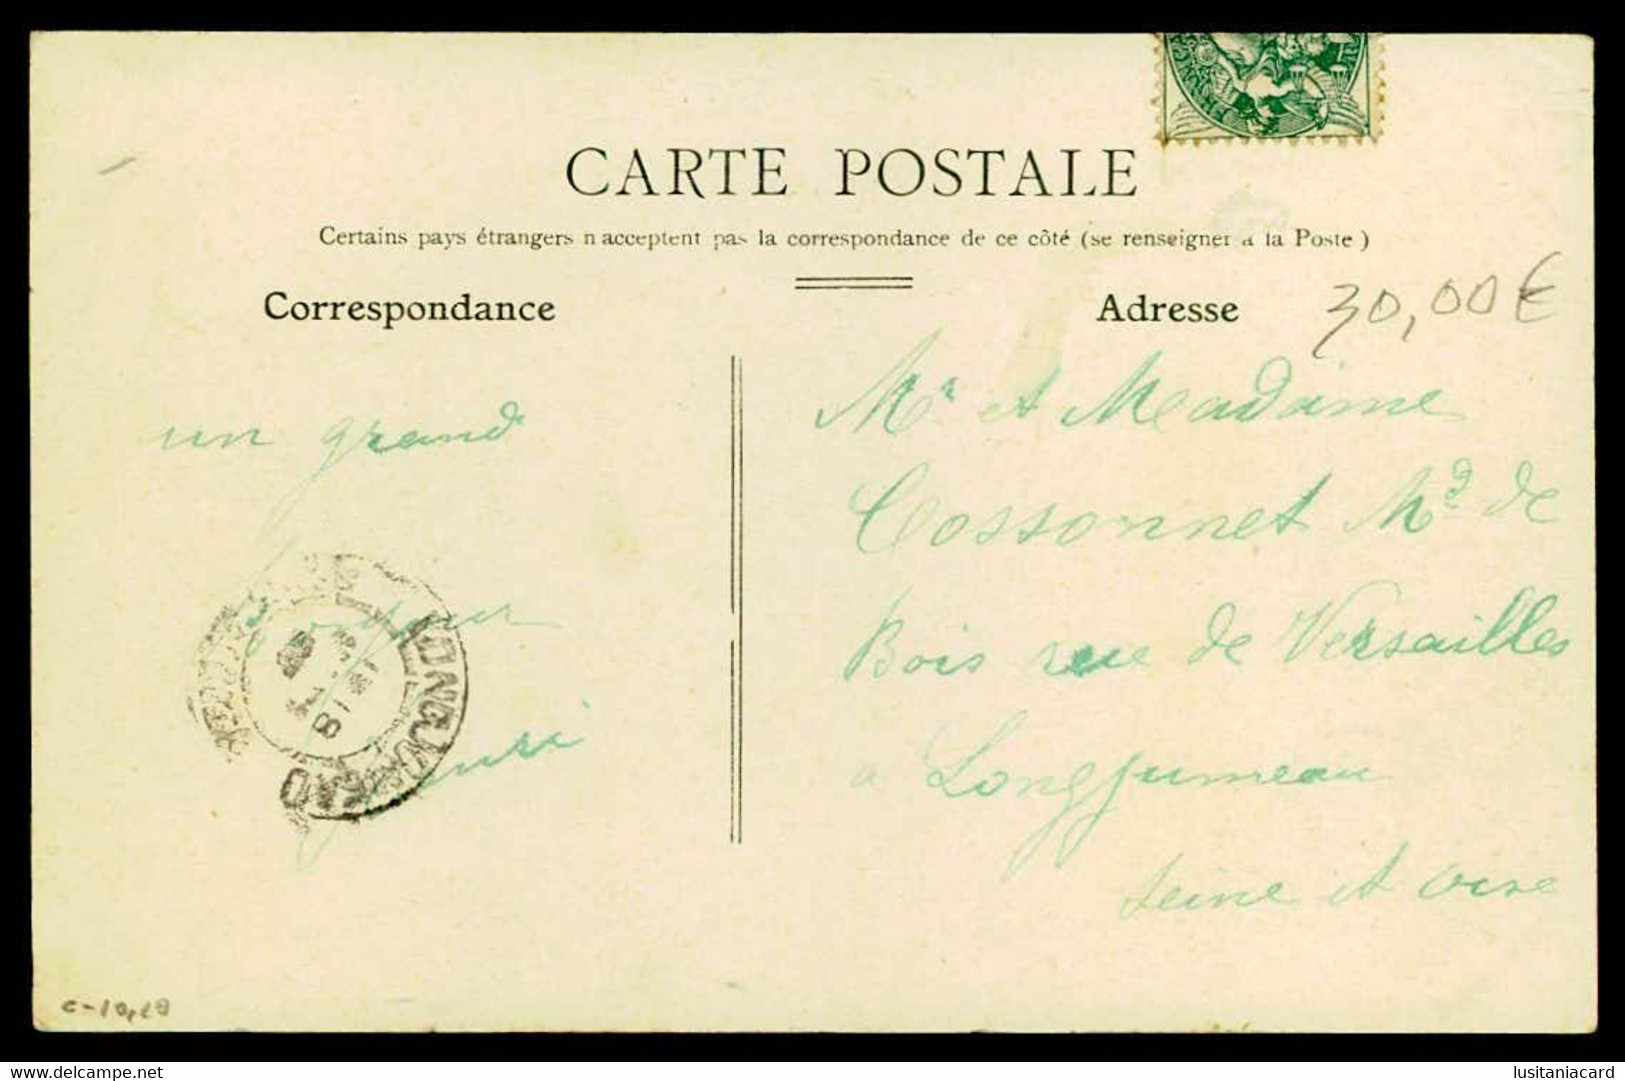 CARTE POSTALE
Certains pays étrangers n'acceptent pas la correspondance de ce côté (se renseigner à la Poste)
Correspondance
Adresse
30,00 €
un grand
bonjour
Mr et Madame
Cossonnet Md de
Bois rue de Versailles
a Longjumeau
Seine et Oise
LONGJUMEAU
Free Image Hosting By Delcampe
lusitaniacard